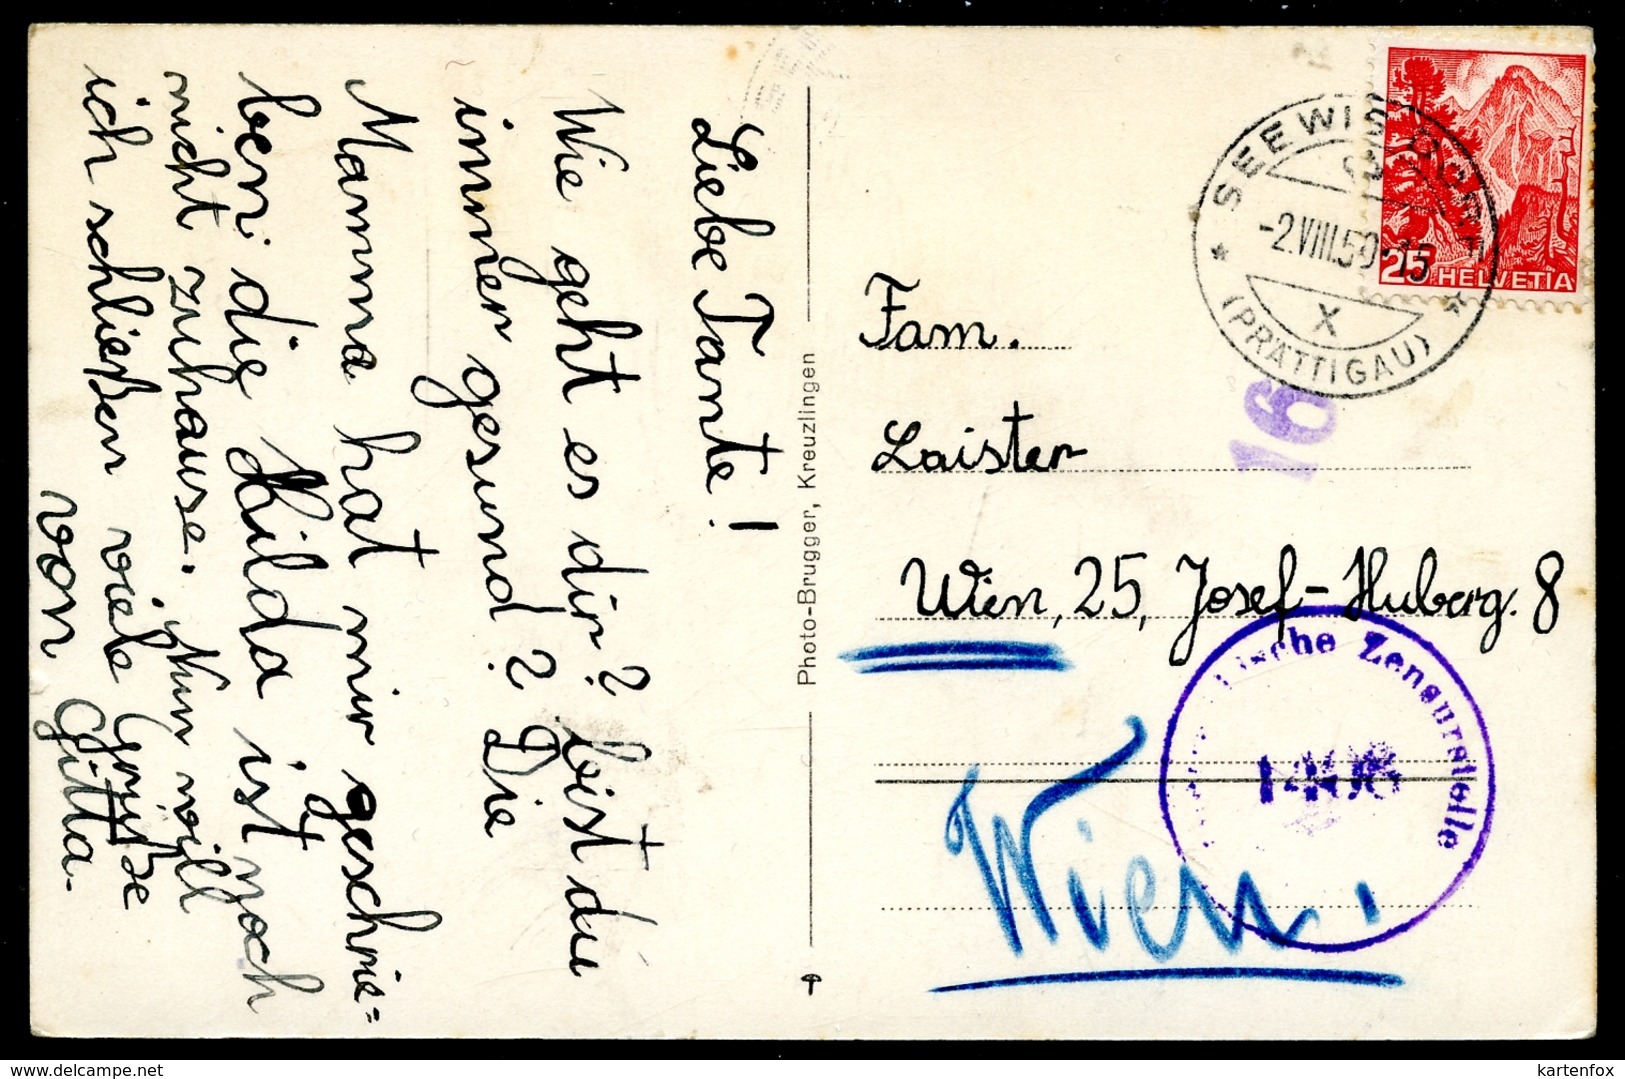 Liebe Tante!
Wie geht es dir? bist du
immer gesund? Die
Mamma hat mir geschrie=
ben die Hilda ist noch
nicht zuhause. Nun will
ich schließen viele Grüße
von Gitta.
Photo-Brugger, Kreuzlingen
SEEWIS DORF
-2.VIII.50-15
X
(PRÄTTIGAU)
25 HELVETIA
16
Fam.
Laister
Wien, 25, Josef-Huberg. 8
Wien.
ische Zensurstelle
delcampe.net
kartenfox